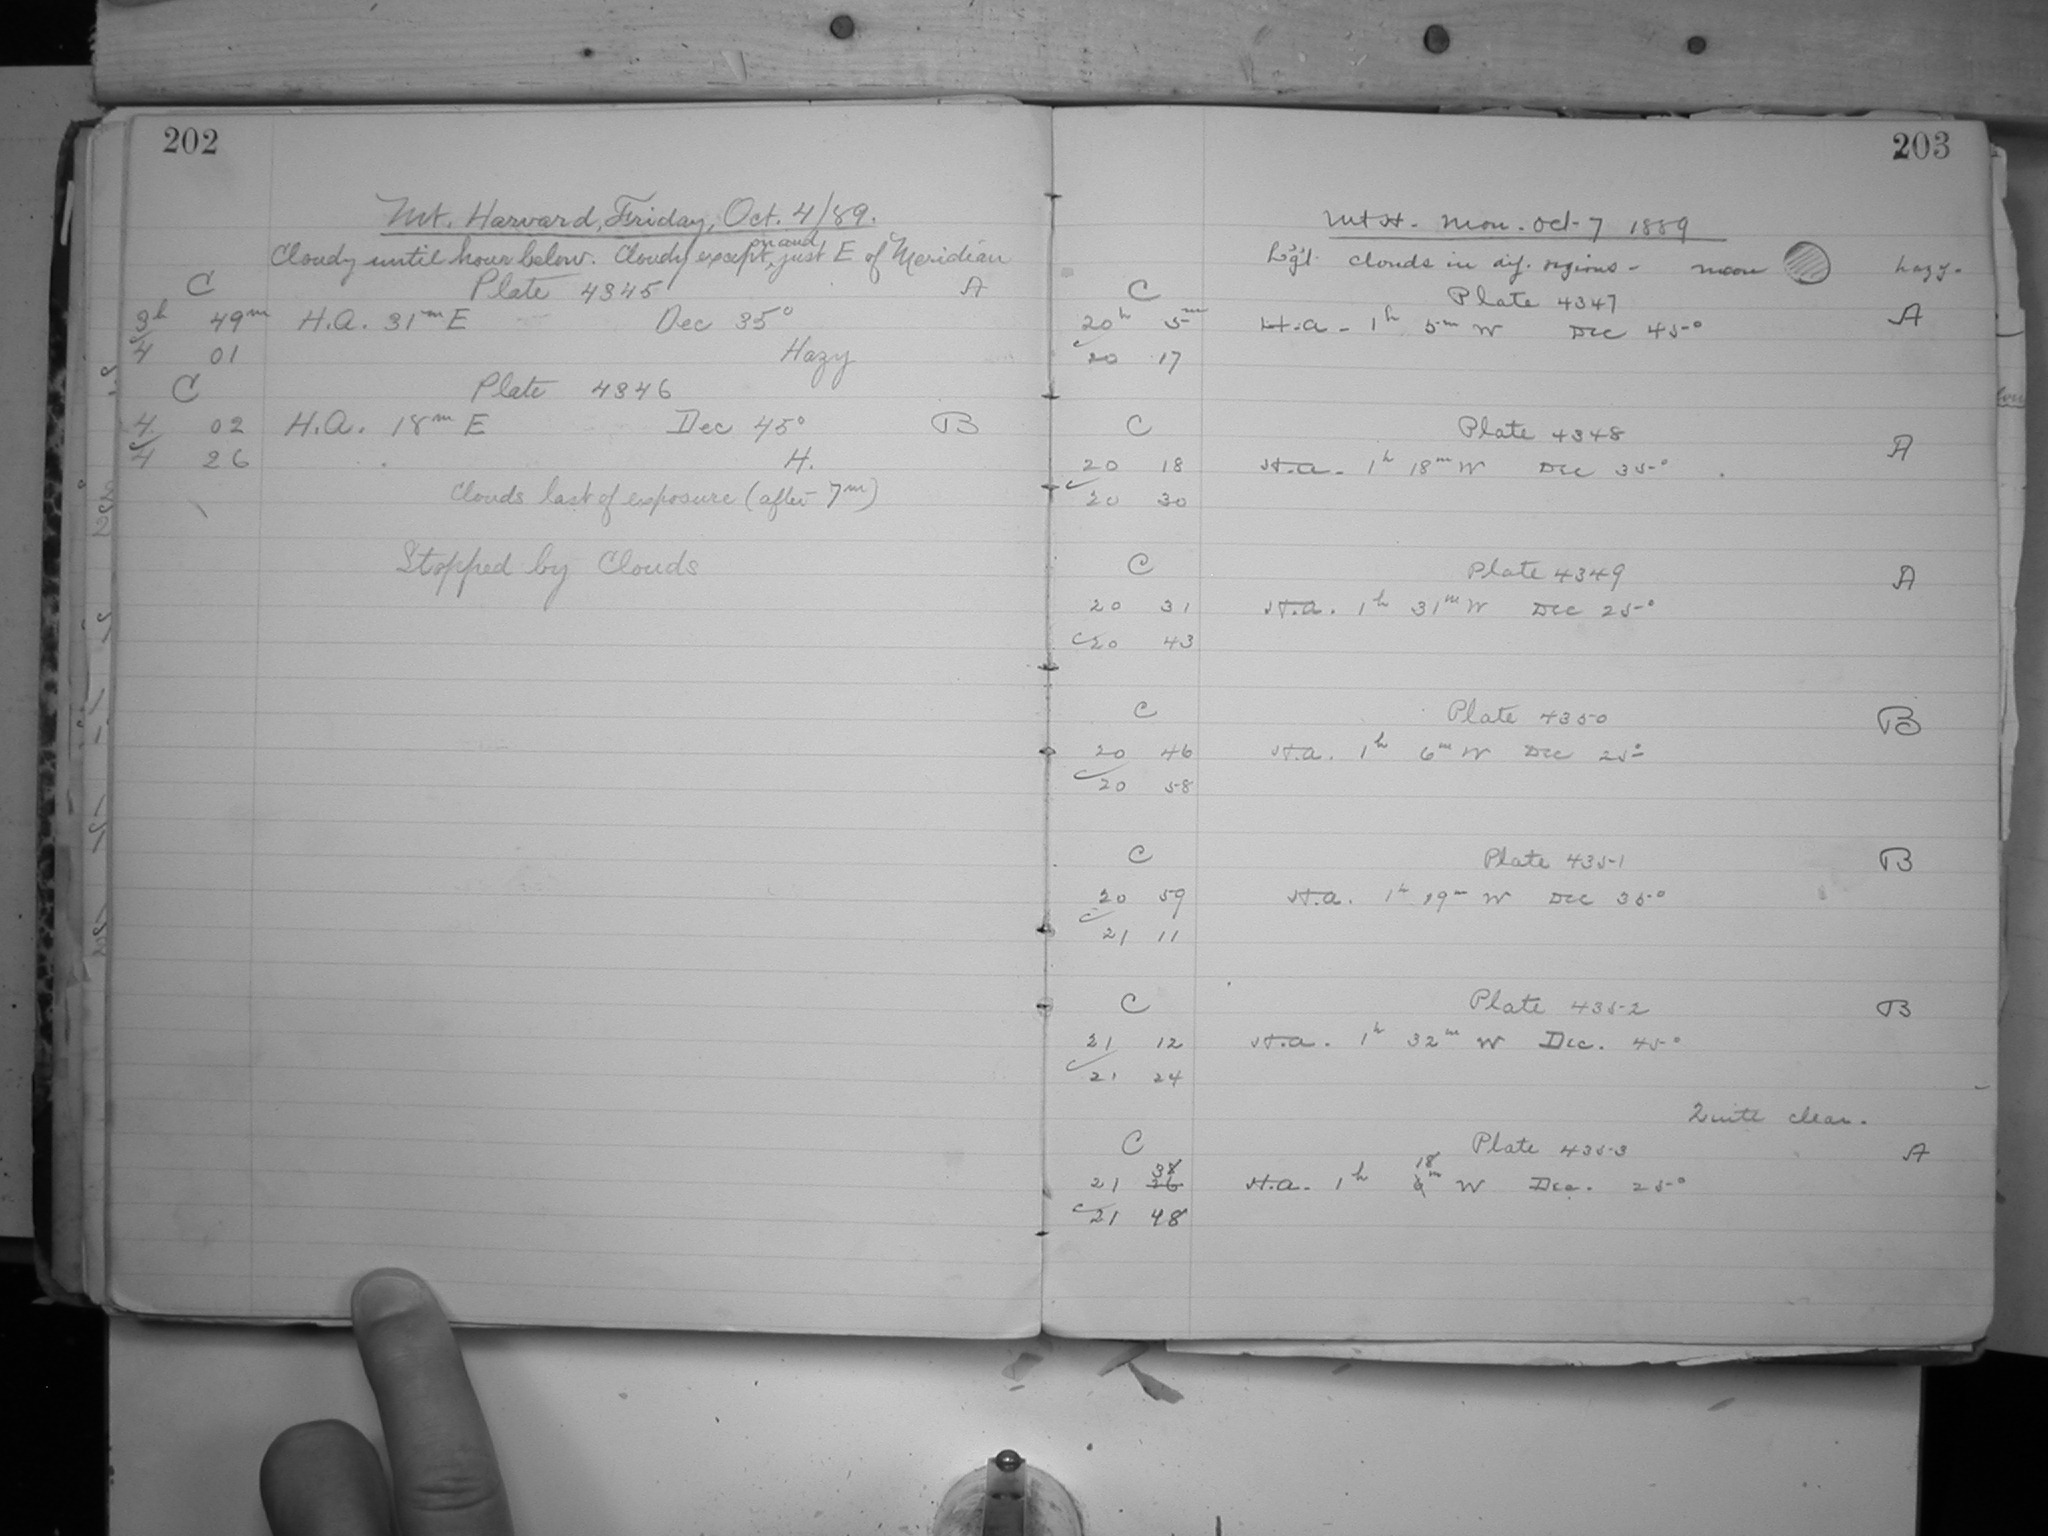 202
Mt. Harvard, Friday, Oct. 4/89.
Cloudy until hour below. Cloudy except on and just E of Meridian
C Plate 4345 A
3h 49m H.A. 31m E Dec 35°
4 01 Hazy
C Plate 4346
4 02 H.A. 18m E Dec 45° B
4 26 H.
Clouds last of exposure (after 7m)
Stopped by Clouds
203
Mt H. Mon. Oct. 7 1889
clouds in dif. regions - moon hazy.
C Plate 4347
20h 5m H.a. 1h 5m W Dec 45° A
20 17
C Plate 4348 A
20 18 H.a. 1h 18m W Dec 35°
20 30
C Plate 4349 A
20 31 H.a. 1h 31m W Dec 25°
20 43
C Plate 4350 B
20 46 H.a. 1h 6m W Dec 25°
20 58
C Plate 4351 B
20 59 H.a. 1h 19m W Dec 35°
21 11
C Plate 4352 B
21 12 H.a. 1h 32m W Dec. 45°
21 24
Quite clear.
C Plate 4353 A
38 18
21 26 H.a. 1h 6m W Dec. 25°
21 48